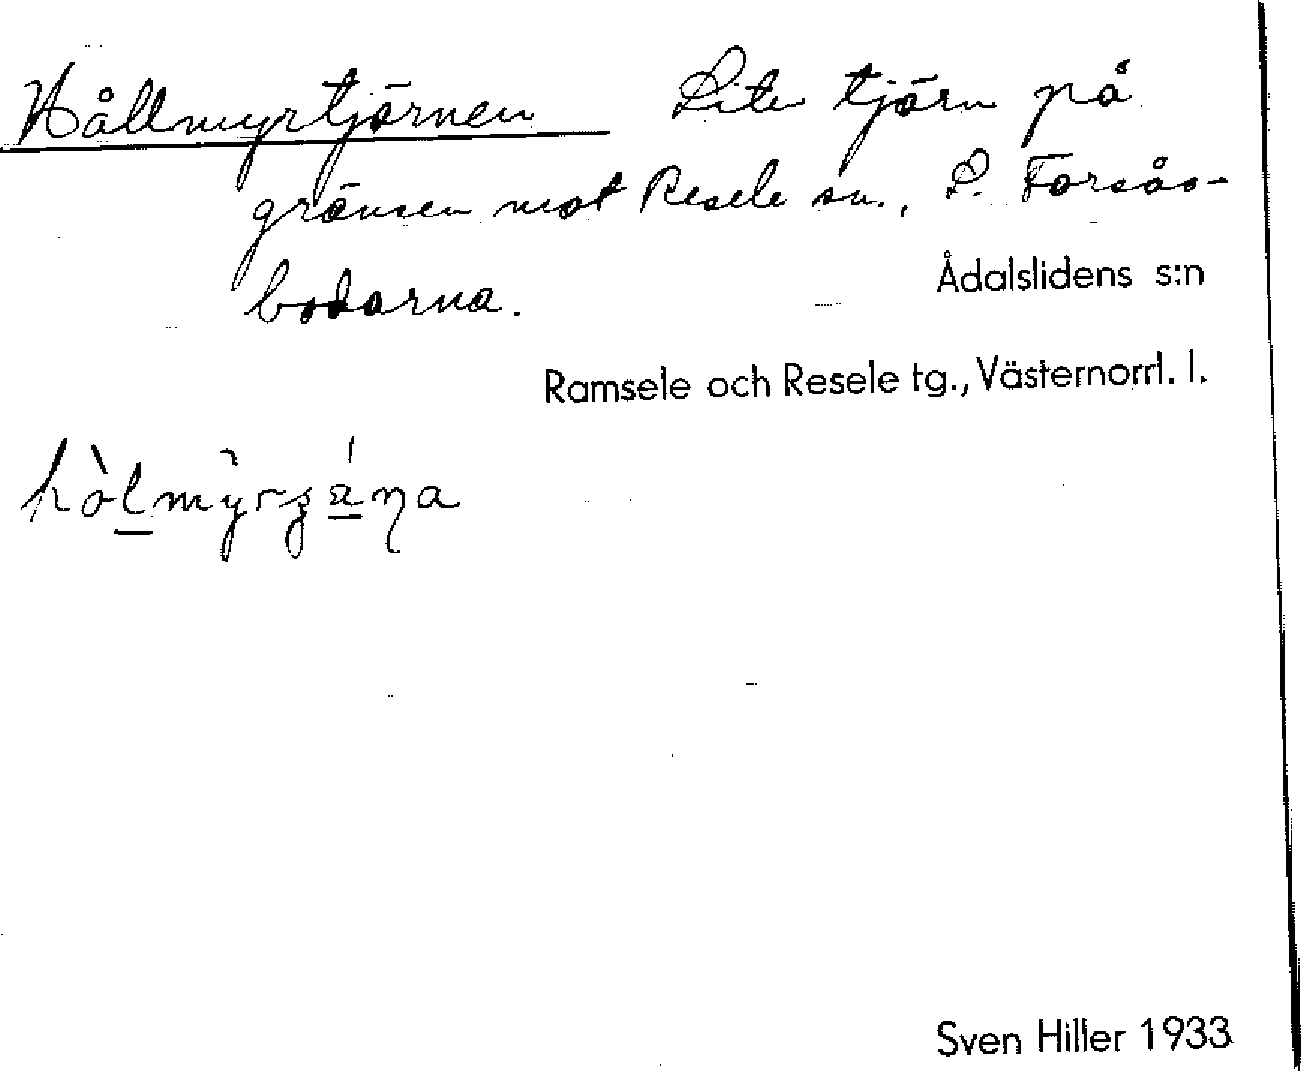 Hållmyrtjärnen Liten tjärn på
gränsen mot Resele sn., S. Forsås-
bodarna.
Ådalslidens s:n
Ramsele och Resele tg., Västernorrl. l.
Sven Hiller 1933